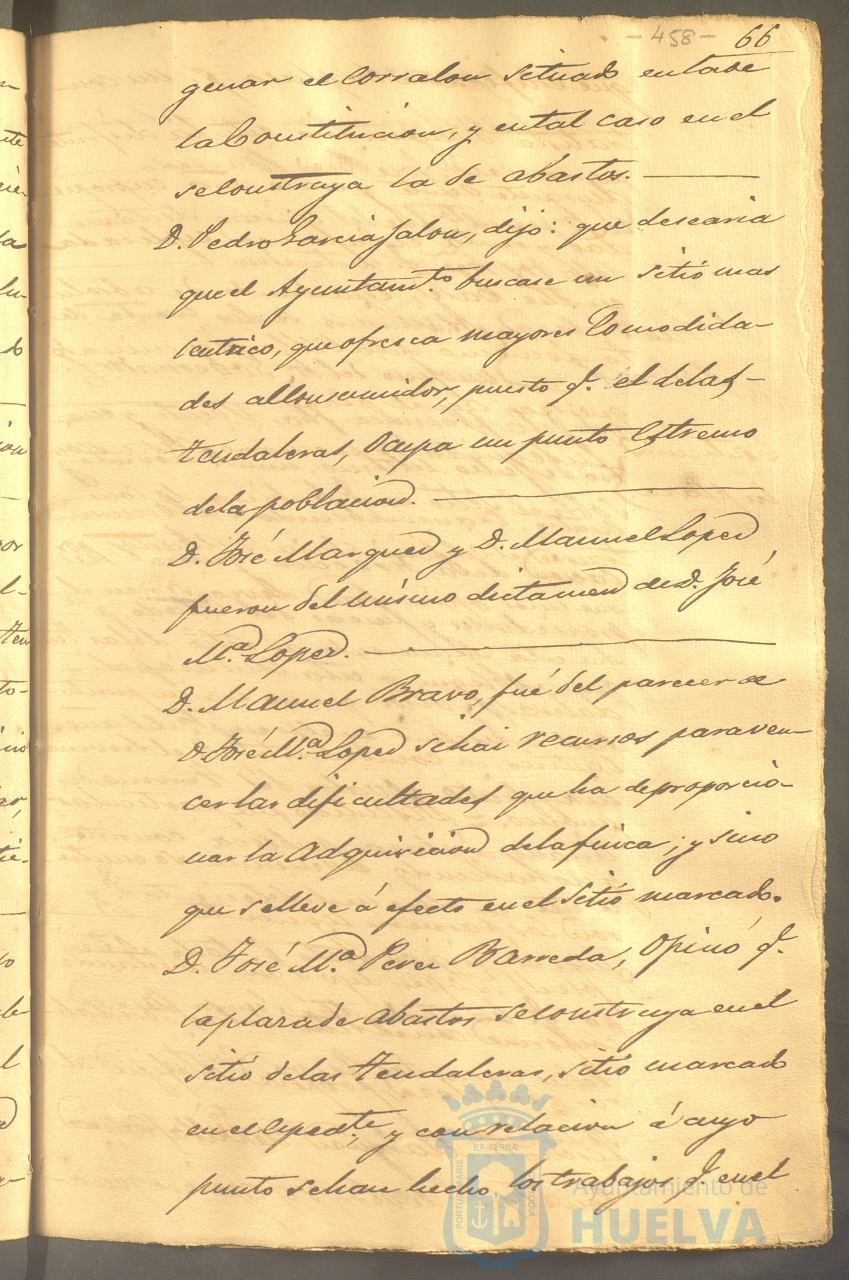 - 458 - 66
genar el Corralon situado en la de
la Constitucion, y en tal caso en el
se Construya la de abastos.
D. Pedro Garcia Jalon, dijo: que desearia
que el Ayuntamto. buscase un sitio mas
Centrico, que ofresca mayores Comodida-
des al Consumidor, puesto q. el de las
tendaleras, Ocupa un punto Estremo
de la poblacion.
D. José Marquez y D. Manuel Lopez
fueron del mismo dictamen de D. José
Ma. Lopez.
D. Manuel Bravo, fué del parecer de
D José Ma. Lopez si hai recursos para ven-
cer las dificultades que ha de proporcio-
nar la Adquisicion de la finca; y sino
que se lleve á efecto en el Sitio marcado.
D. José Ma. Perez Barreda, Opinó q.
la plaza de Abastos se Construya en el
sitio de las tendaleras, sitio marcado
en el Espedte. y con relacion á cuyo
punto se han hecho los trabajos q. en el
Ayuntamiento de
HUELVA
PORTUS MARIS
ET TERRÆ